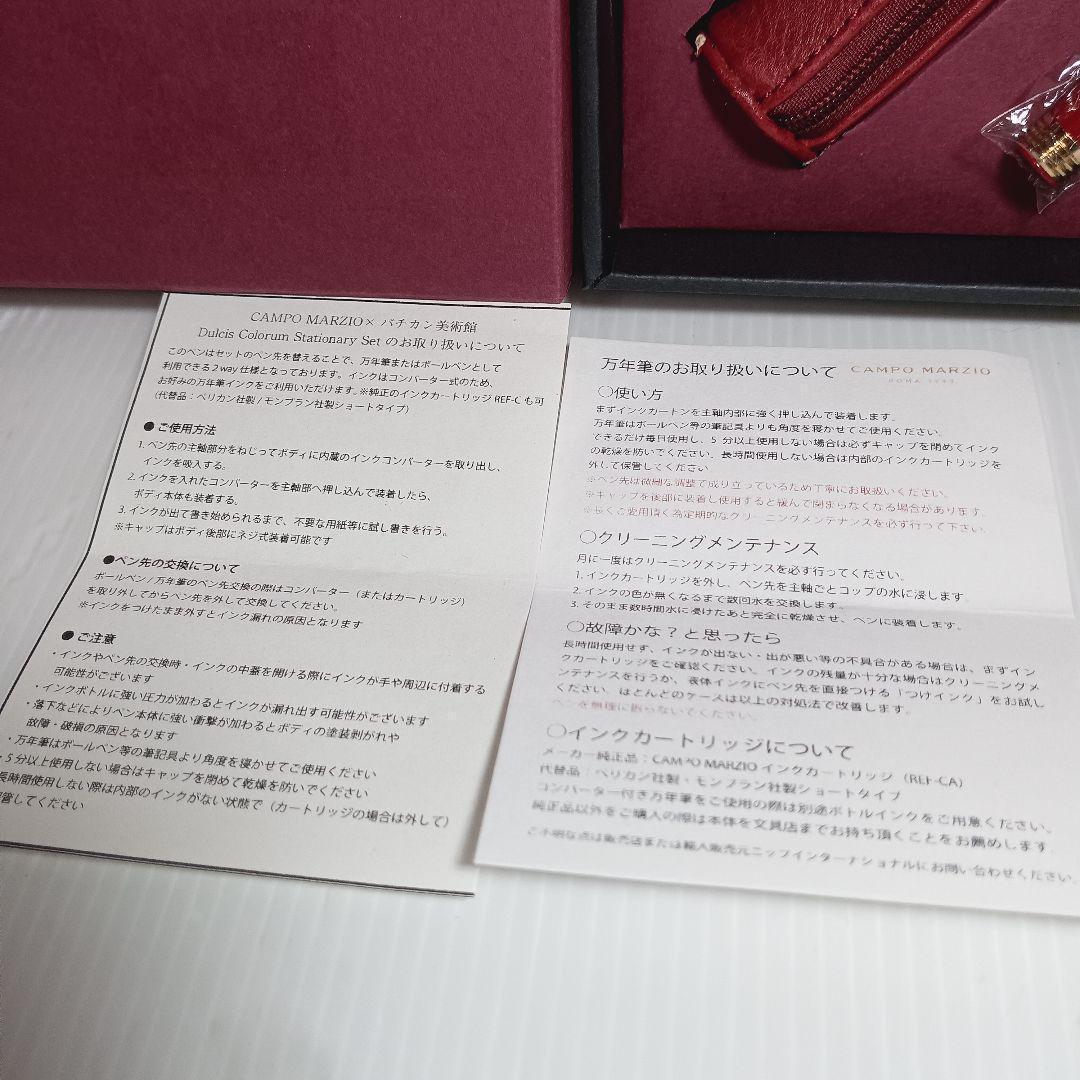 CAMPO MARZIO× バチカン美術館
Dulcis Colorum Stationary Set のお取り扱いについて
このペンはセットのペン先を替えることで、万年筆またはボールペンとして
利用できる2way仕様となっております。インクはコンバーター式のため、
お好みの万年筆インクをご利用いただけます。※純正のインクカートリッジREF-Cも可
(代替品：ペリカン社製/モンブラン社製ショートタイプ)
●ご使用方法
1. ペン先の主軸部分をねじってボディに内蔵のインクコンバーターを取り出し、
インクを吸入する。
2. インクを入れたコンバーターを主軸部へ押し込んで装着したら、
ボディ本体も装着する。
3. インクが出て書き始められるまで、不要な用紙等に試し書きを行う。
※キャップはボディ後部にネジ式装着可能です
●ペン先の交換について
ボールペン/万年筆のペン先交換の際はコンバーター（またはカートリッジ）
を取り外してからペン先を外して交換してください。
※インクをつけたまま外すとインク漏れの原因となります
●ご注意
・インクやペン先の交換時・インクの中蓋を開ける際にインクが手や周辺に付着する
可能性がございます
・インクボトルに強い圧力が加わるとインクが漏れ出す可能性がございます
・落下などによりペン本体に強い衝撃が加わるとボディの塗装剥がれや
故障・破損の原因となります
・万年筆はボールペン等の筆記具より角度を寝かせてご使用ください
・5分以上使用しない場合はキャップを閉めて乾燥を防いでください
長時間使用しない際は内部のインクがない状態で（カートリッジの場合は外して）
管してください
万年筆のお取り扱いについて CAMPO MARZIO
ROMA 1933
○使い方
まずインクカートンを主軸内部に強く押し込んで装着します。
万年筆はボールペン等の筆記具よりも角度を寝かせてご使用ください。
できるだけ毎日使用し、5 分以上使用しない場合は必ずキャップを閉めてインク
の乾燥を防いでください。長時間使用しない場合は内部のインクカートリッジを
外して保管してください
※ペン先は微細な調整で成り立っているため丁寧にお取扱いください。
※キャップを後部に装着し使用すると緩んで閉まらなくなる場合があります。
※長くご愛用頂く為定期的なクリーニングメンテナンスを必ず行って下さい。
○クリーニングメンテナンス
月に一度はクリーニングメンテナンスを必ず行ってください。
1. インクカートリッジを外し、ペン先を主軸ごとコップの水に浸します。
2. インクの色が無くなるまで数回水を交換します。
3. そのまま数時間水に浸けたあと完全に乾燥させ、ペンに装着します。
○故障かな？と思ったら
長時間使用せず、インクが出ない・出が悪い等の不具合がある場合は、まずイン
クカートリッジをご確認ください。インクの残量が十分な場合はクリーニングメ
ンテナンスを行うか、液体インクにペン先を直接つける「つけインク」をお試し
ください。ほとんどのケースは以上の対処法で改善します。
ペンを無理に振らないでください。
○インクカートリッジについて
メーカー純正品：CAMPO MARZIO インクカートリッジ（REF-CA）
代替品：ペリカン社製・モンブラン社製ショートタイプ
コンバーター付き万年筆をご使用の際は別途ボトルインクをご用意ください。
純正品以外をご購入の際は本体を文具店までお持ち頂くことをお薦めします。
ご不明な点は販売店または輸入販売元ニップインターナショナルにお問い合わせください。